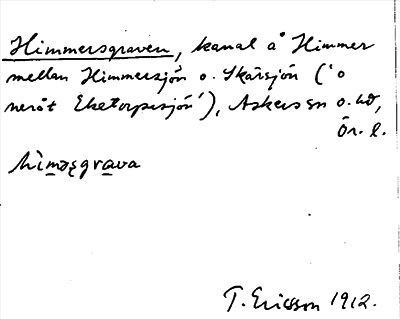 Himmersgraven, kanal å Himmer
mellan Himmersjön o. Skärsjön ('o
neråt Eketorpssjön'), Askers sn o. hd,
Ör. l.
hìmǝsgrava
T. Ericsson 1912.